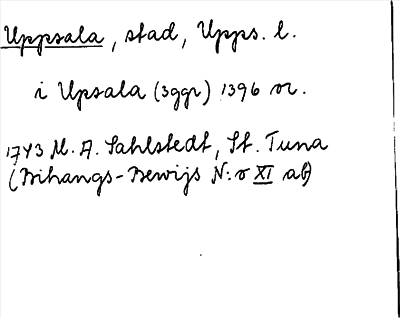 Uppsala, stad, Upps. l.
i Upsala (3ggr) 1396 or.
1743 M. A. Sahlstedt, St. Tuna
(Bihangs-Bewijs N:o XI ab)